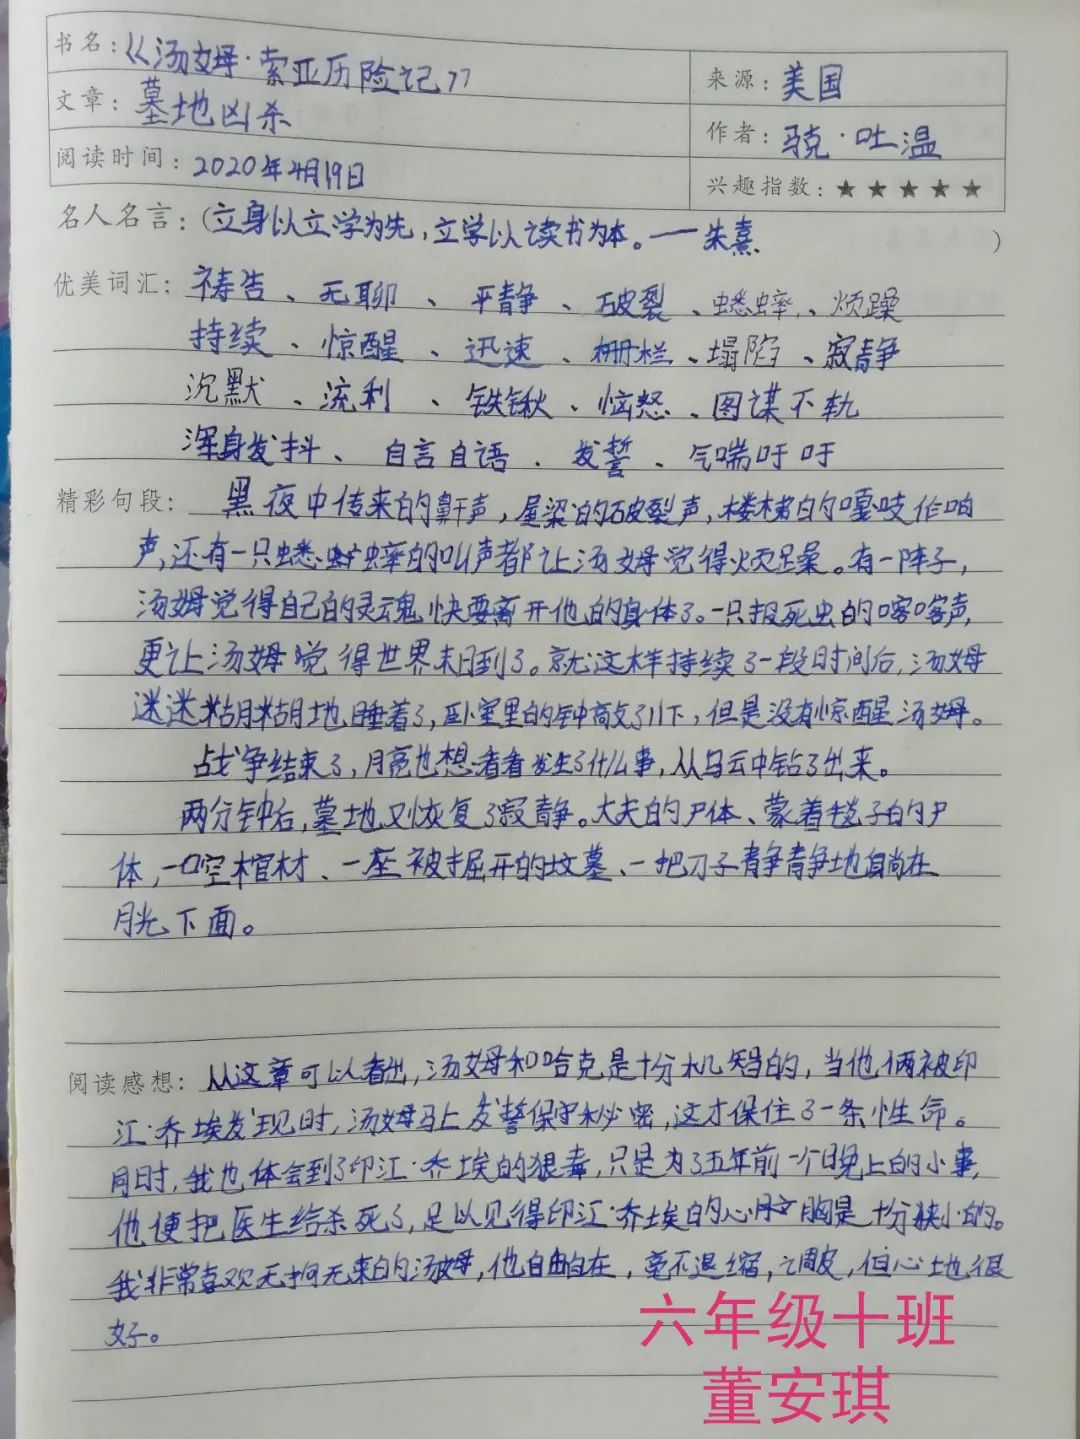 书名：《汤姆·索亚历险记》
来源：美国
文章：墓地凶杀
作者：马克·吐温
阅读时间：2020年4月19日
兴趣指数：★★★★★
名人名言：（立身以立学为先，立学以读书为本。——朱熹）
优美词汇：祷告、无聊、平静、破裂、蟋蟀、烦躁
持续、惊醒、迅速、栅栏、塌陷、寂静
沉默、流利、铁锹、恼怒、图谋不轨
浑身发抖、自言自语、发誓、气喘吁吁
精彩句段：黑夜中传来的鼾声，屋梁的破裂声，楼梯的嘎吱作响
声，还有一只蟋蟀的叫声都让汤姆觉得烦躁。有一阵子，
汤姆觉得自己的灵魂快要离开他的身体了。一只报死虫的喀喀声，
更让汤姆觉得世界末日到了。就这样持续了一段时间后，汤姆
迷迷糊糊地睡着了，卧室里的钟敲了11下，但是没有惊醒汤姆。
战争结束了，月亮也想看看发生了什么事，从乌云中钻了出来。
两分钟后，墓地又恢复了寂静。大夫的尸体、蒙着毯子的尸
体，一口空棺材、一座被掘开的坟墓、一把刀子静静地躺在
月光下面。
阅读感想：从这章可以看出，汤姆和哈克是十分机智的，当他俩被印
江·乔埃发现时，汤姆马上发誓保守秘密，这才保住了一条性命。
同时，我也体会到了印江·乔埃的狠毒，只是为了五年前一个晚上的小事，
他便把医生给杀死了，足以见得印江·乔埃的心胸是十分狭小的。
我非常喜欢无拘无束的汤姆，他自由自在，毫不退缩，调皮，但心地很
好。
六年级十班
董安琪